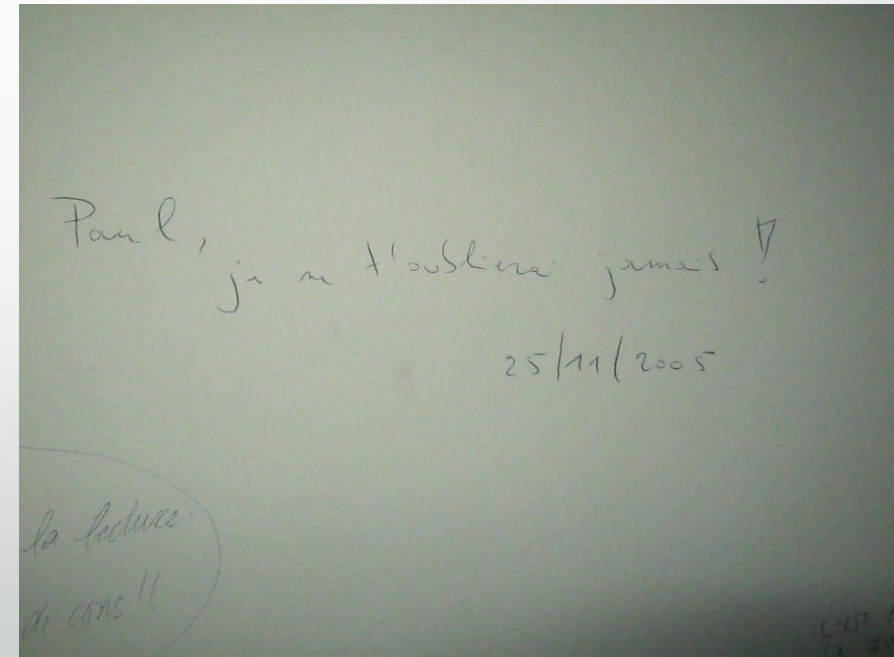 Paul,
je ne t'oublierai jamais !
25/11/2005
la lecture.
de cons !!
C'EST
LA